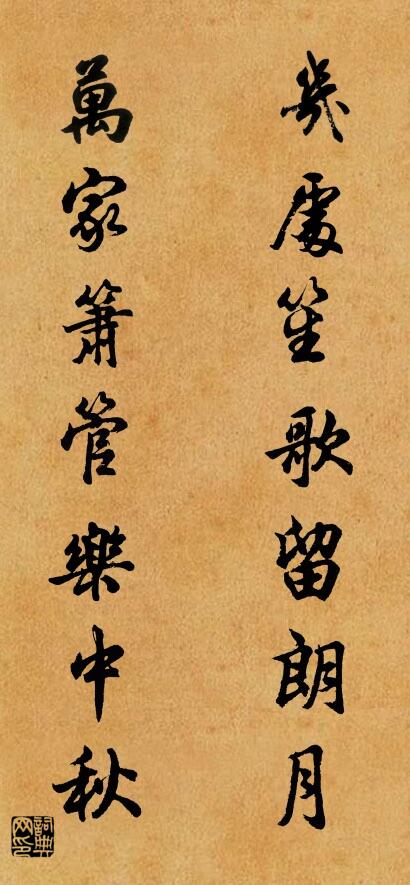 幾處笙歌留朗月
萬家簫管樂中秋
詞典网印